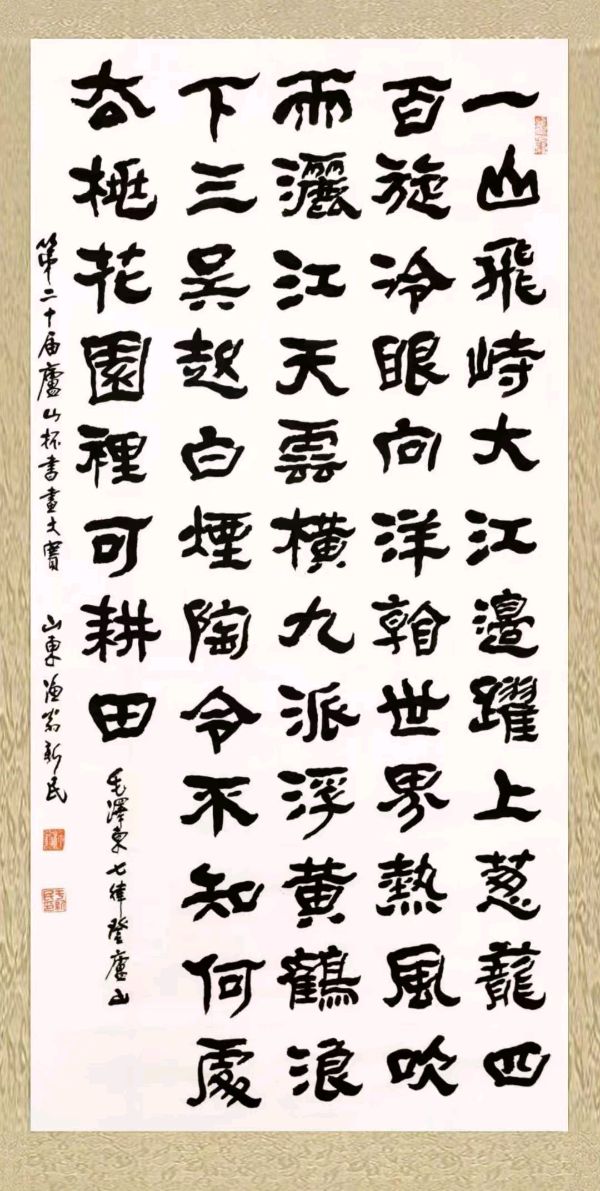 一山飛峙大江邊躍上葱蘢四
百旋冷眼向洋看世界熱風吹
雨灑江天雲橫九派浮黃鶴浪
下三吳越白煙陶令不知何處
去桃花園裡可耕田
毛澤東七律登廬山
第二十届廬山杯書畫大賽 山東渔翁新民